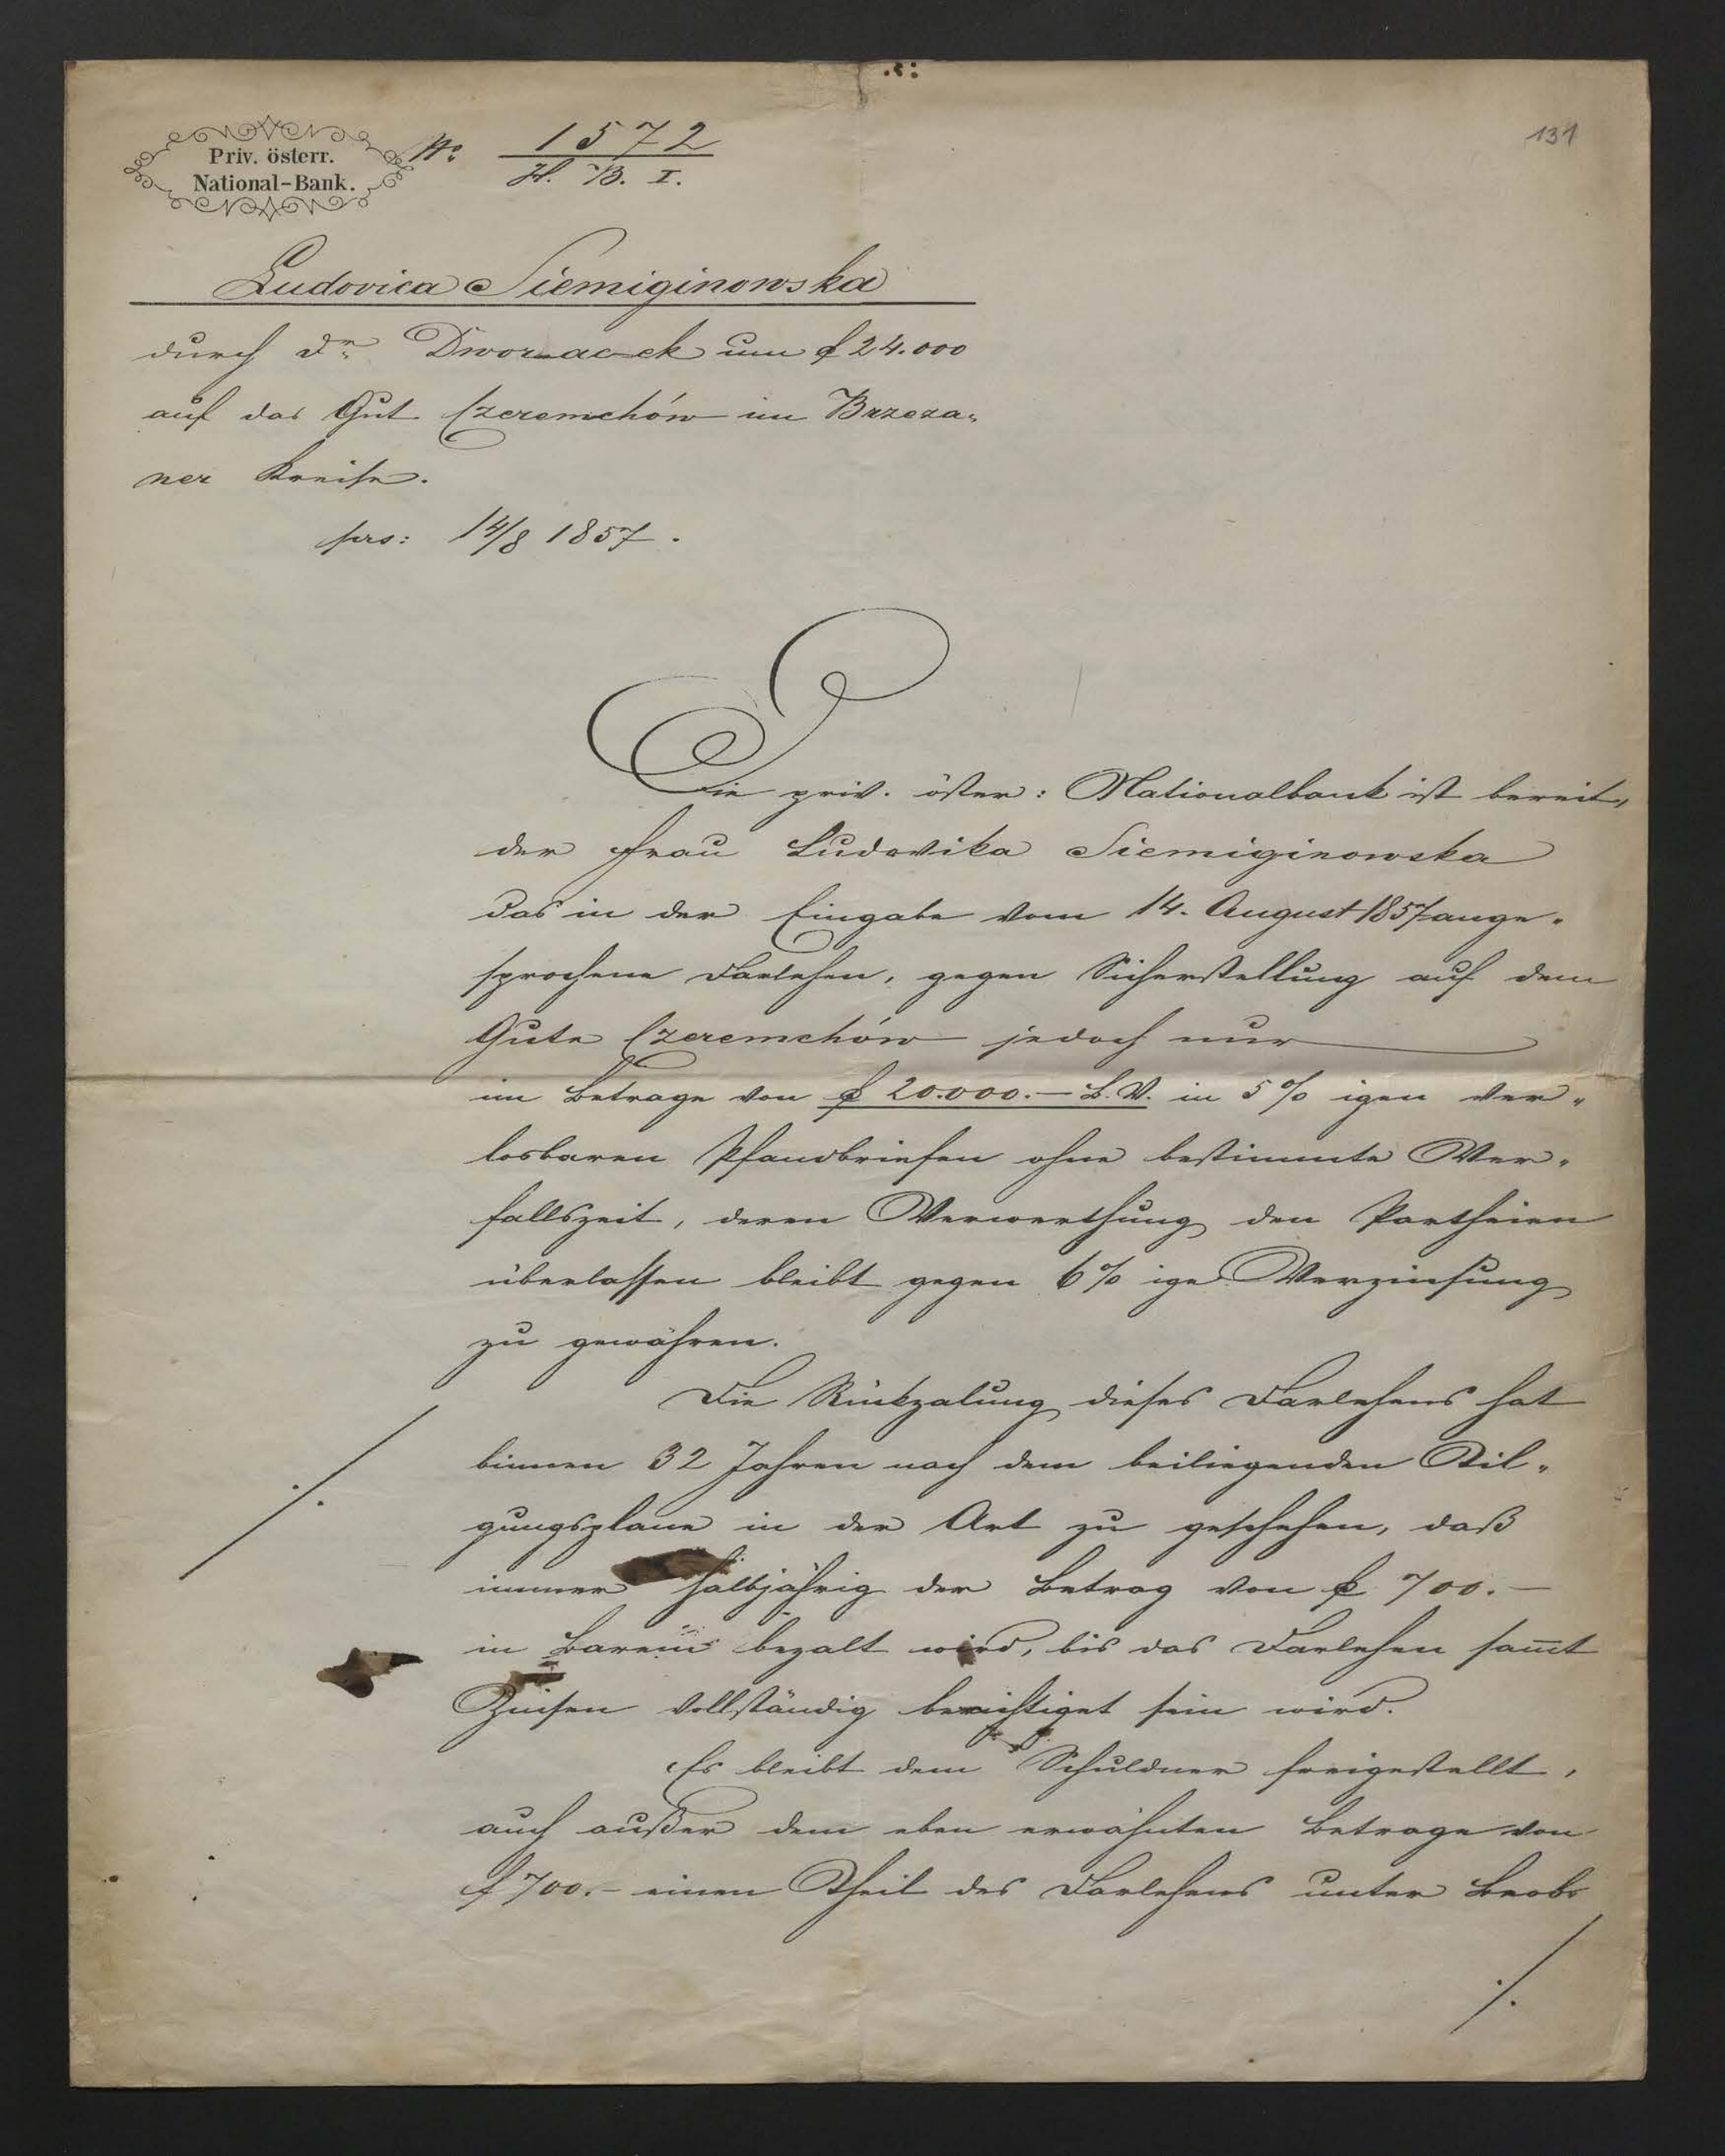 131
Priv. österr.
National-Bank.
No 1572
H. B. I.
Ludovica Siemiginowska
durch Dr. Dworzaczek um f 24.000
auf das Gut Czeremchów im Brzeza-
ner Kreise.
prs: 14/8 1857.
Die priv. öster: Nationalbank ist bereit,
der Frau Ludovika Siemiginowska
das in der Eingabe vom 14. August 1857 ange-
sprochene Darlehen, gegen Sicherstellung auf dem
Gute Czeremchów jedoch nur
im Betrage von f 20.000.– B.V. in 5% igen ver-
losbaren Pfandbriefen ohne bestimmte Ver-
fallszeit, deren Verwerthung den Partheien
überlassen bleibt gegen 6% ige Verzinsung
zu gewähren.
Die Rückzalung dieses Darlehens hat
binnen 32 Jahren nach dem beiliegenden Til-
gungsplane in der Art zu geschehen, daß
immer halbjährig der Betrag von f 700.–
in Barem bezalt wird, bis das Darlehen sam̅t
Zinsen vollständig berichtiget sein wird.
Es bleibt dem Schuldner freigestellt,
auch außer dem eben erwähnten Betrage von
f 700.– einen Theil des Darlehens unter Beob-
./.